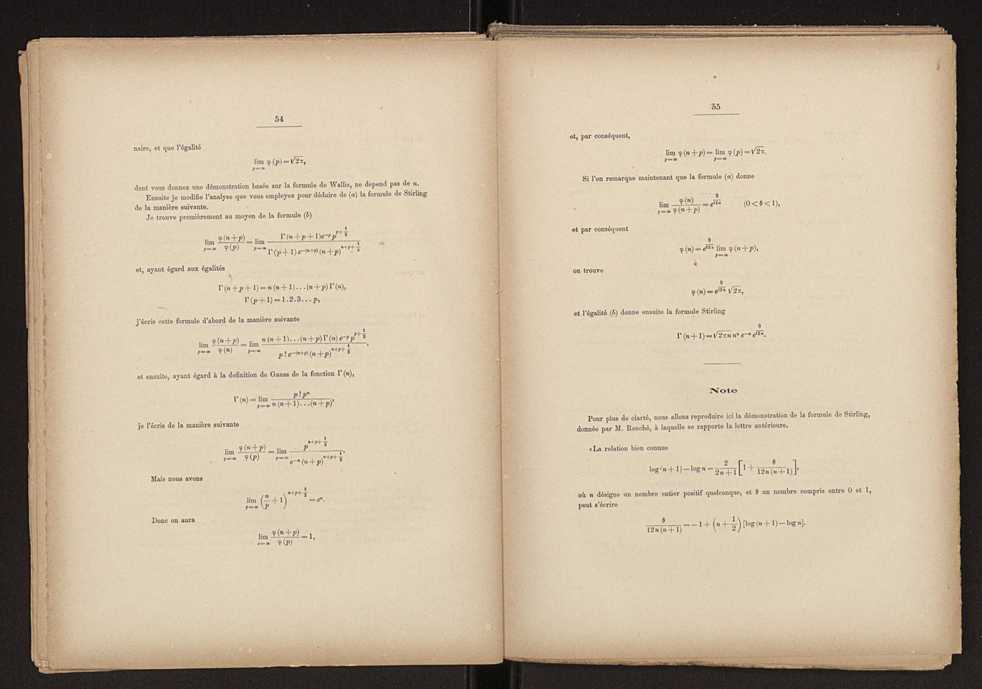 54
naire, et que l'égalité
lim φ (p) = √2π,
p=∞
dont vous donnez une démonstration basée sur la formule de Wallis, ne depend pas de n.
Ensuite je modifie l'analyse que vous employez pour déduire de (a) la formule de Stirling
de la manière suivante.
Je trouve premièrement au moyen de la formule (b)
lim_{p=∞} φ(n+p)/φ(p) = lim_{p=∞} Γ(n+p+1) e^{-p} p^{p+1/2} / Γ(p+1) e^{-(n+p)} (n+p)^{n+p+1/2}
et, ayant égard aux égalités
Γ (n+p+1) = n (n+1)...(n+p) Γ(n),
Γ (p+1) = 1.2.3...p,
j'écris cette formule d'abord de la manière suivante
lim_{p=∞} φ(n+p)/φ(n) = lim_{p=∞} n(n+1)...(n+p) Γ(n) e^{-p} p^{p+1/2} / p! e^{-(n+p)} (n+p)^{n+p+1/2},
et ensuite, ayant égard à la definition de Gauss de la fonction Γ(n),
Γ (n) = lim_{p=∞} p! p^n / n(n+1)...(n+p),
je l'écris de la manière suivante
lim_{p=∞} φ(n+p)/φ(p) = lim_{p=∞} p^{n+p+1/2} / e^{-n} (n+p)^{n+p+1/2},
Mais nous avons
lim_{p=∞} (n/p + 1)^{n+p+1/2} = e^n.
Donc on aura
lim_{p=∞} φ(n+p)/φ(p) = 1,
55
et, par conséquent,
lim_{p=∞} φ (n+p) = lim_{p=∞} φ (p) = √2π.
Si l'on remarque maintenant que la formule (a) donne
lim_{p=∞} φ(n)/φ(n+p) = e^{θ/12n} (0 < θ < 1),
et par conséquent
φ(n) = e^{θ/12n} lim_{p=∞} φ(n+p),
on trouve
φ(n) = e^{θ/12n} √2π,
et l'égalité (b) donne ensuite la formule Stirling
Γ (n+1) = √2πn n^n e^{-n} e^{θ/12n}.
Note
Pour plus de clarté, nous allons reproduire ici la démonstration de la formule de Stirling,
donnée par M. Rouché, à laquelle se rapporte la lettre antérieure.
«La relation bien connue
log (n+1) — log n = 2/(2n+1) [1 + θ/12n(n+1)],
où n désigne un nombre entier positif quelconque, et θ un nombre compris entre 0 et 1,
peut s'écrire
θ/12n(n+1) = — 1 + (n + 1/2) [log (n+1) — log n].